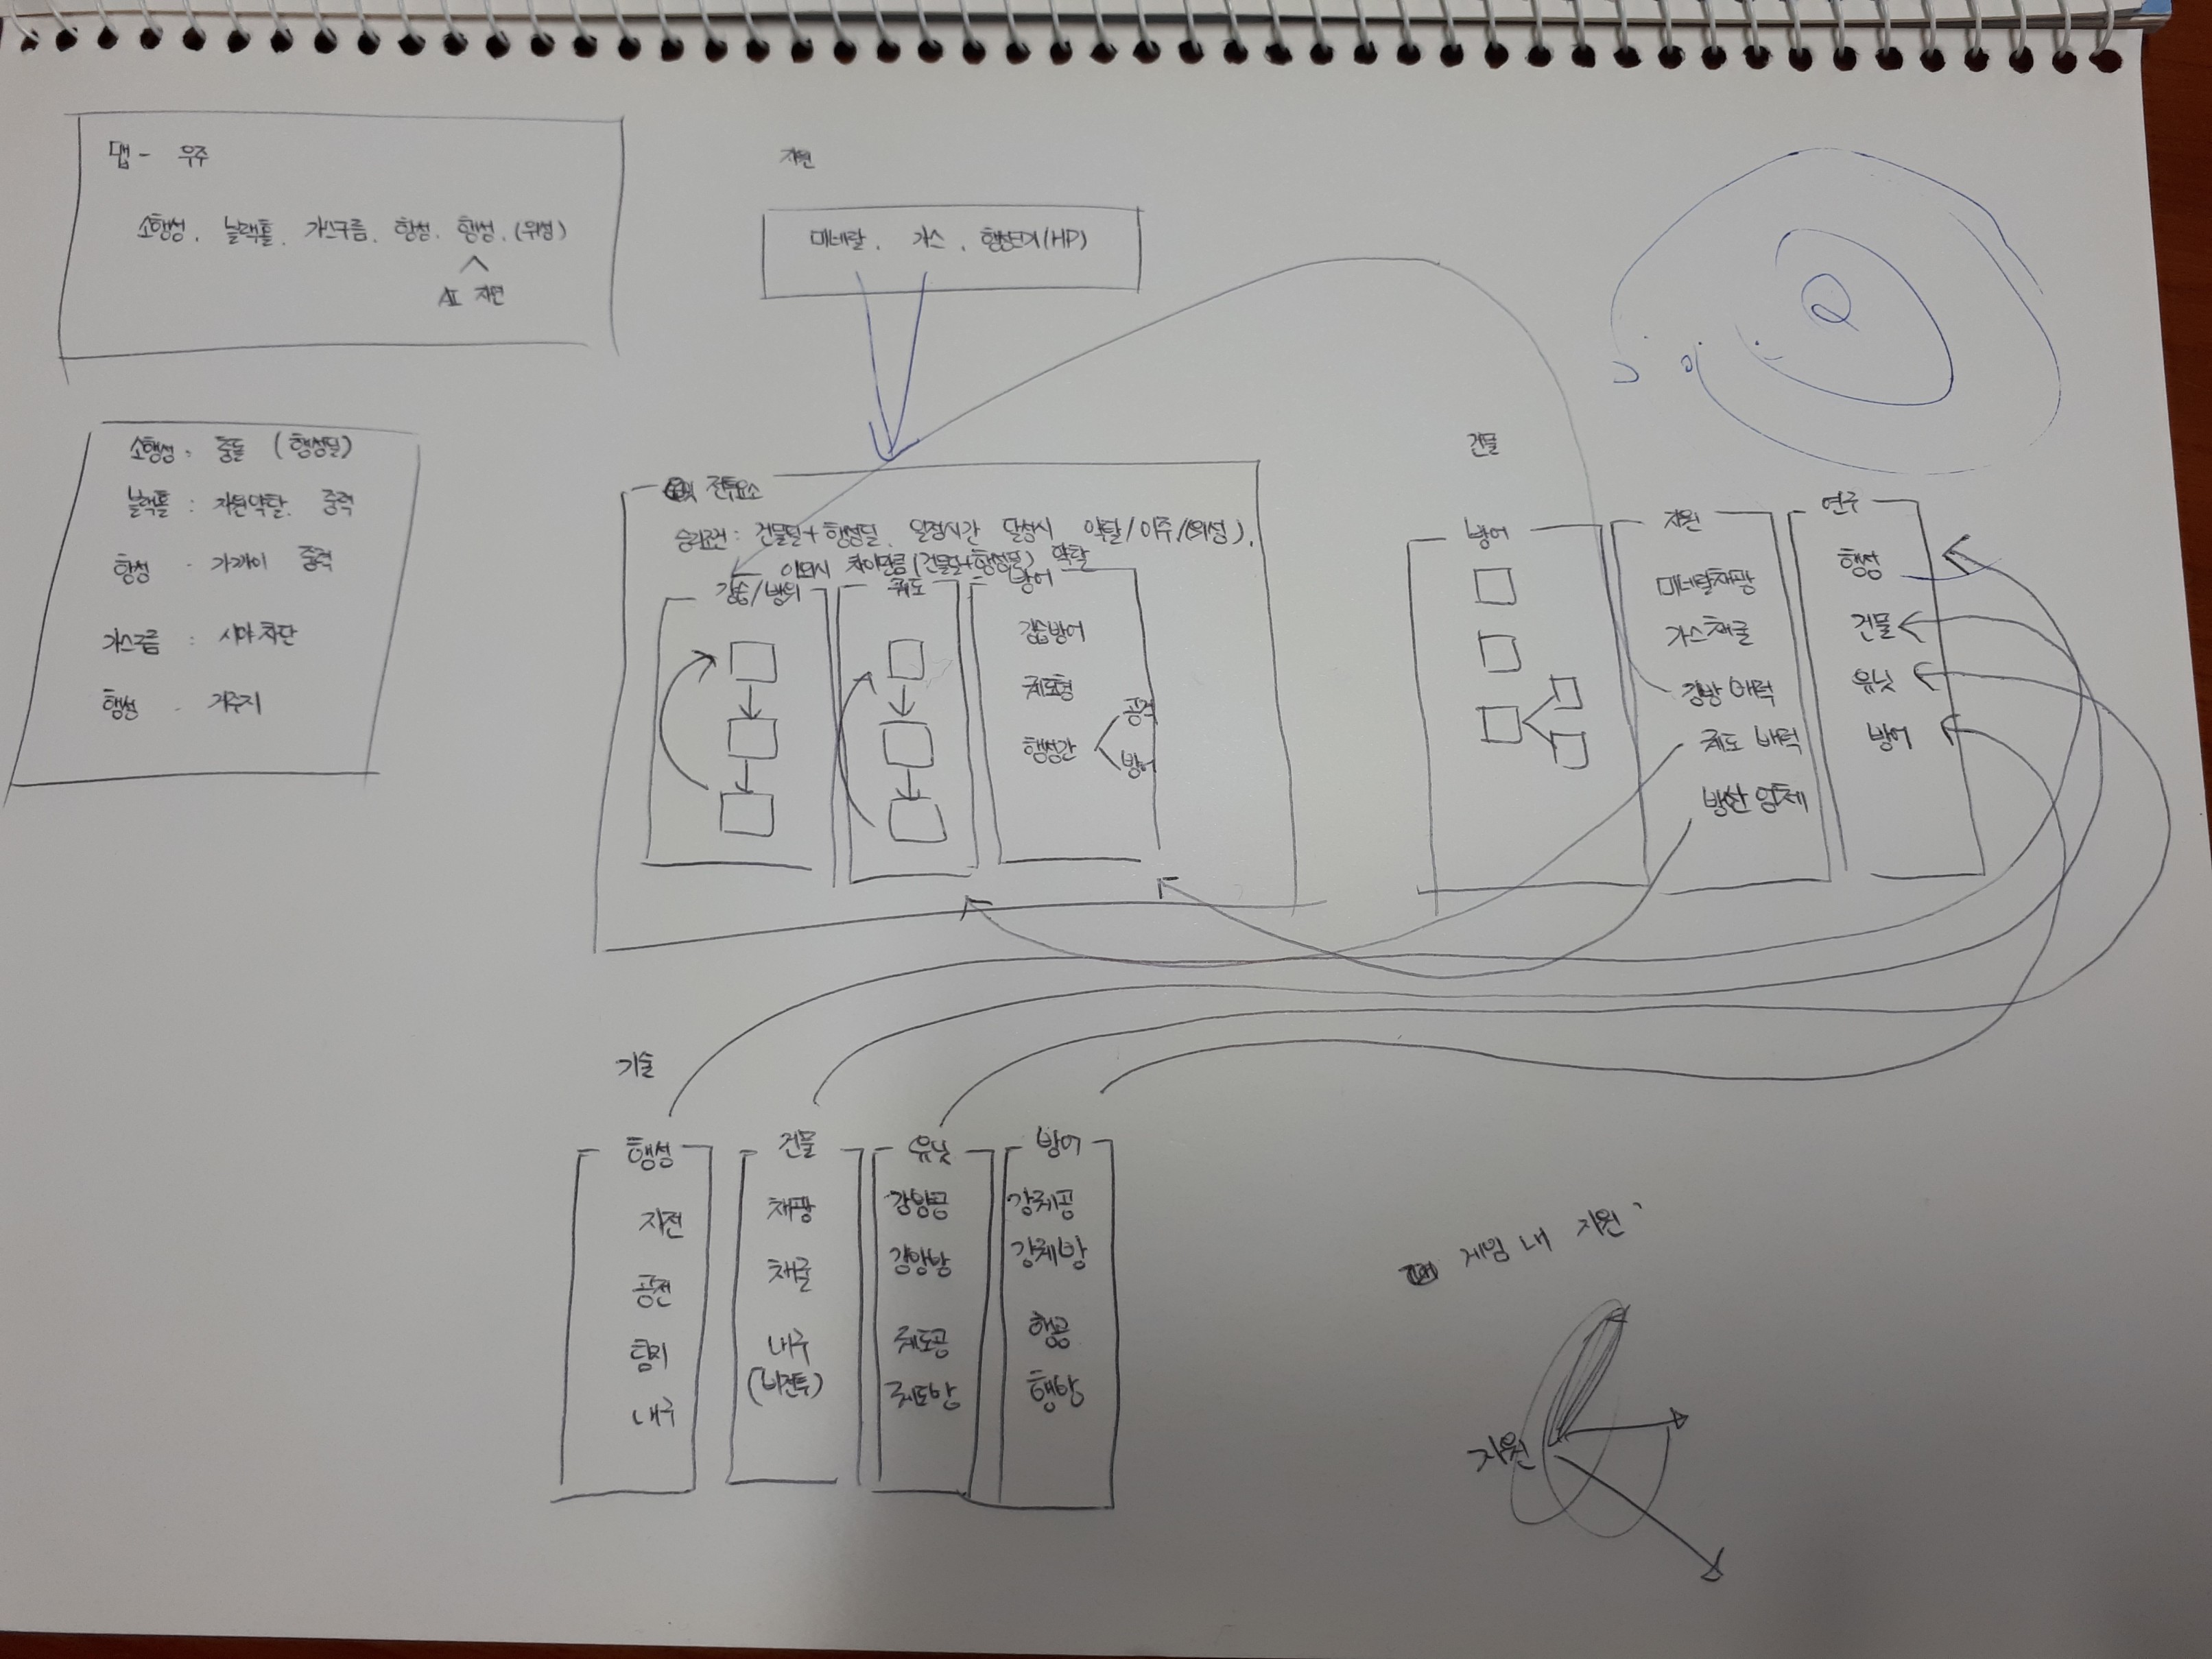 맵 - 우주
소행성. 블랙홀. 가스구름. 항성. 행성. (위성)
AI 자연
소행성 : 충돌 (행성딜)
블랙홀 : 자원약탈. 중력
항성 - 가까이 중력
가스구름 : 시야차단
행성 - 거주지
자원
미네랄. 가스. 행성크기(HP)
전투요소
승리조건 : 건물딜+행성딜. 일정시간 달성시 약탈/이주/(위성).
이외시 차이만큼(건물딜+행성딜) 약탈
강습/방위
궤도
방어
강습방어
궤도형
행성간
공격
방어
건물
방어
자원
미네랄채광
가스채굴
강방 배럭
궤도 배럭
방산업체
연구
행성
건물
유닛
방어
기술
행성
자전
공전
탐지
내구
건물
채광
채굴
내구
(비전투)
유닛
강양공
강양방
궤도공
궤도방
방어
강궤공
강궤방
행공
행방
게임 내 자원
자원